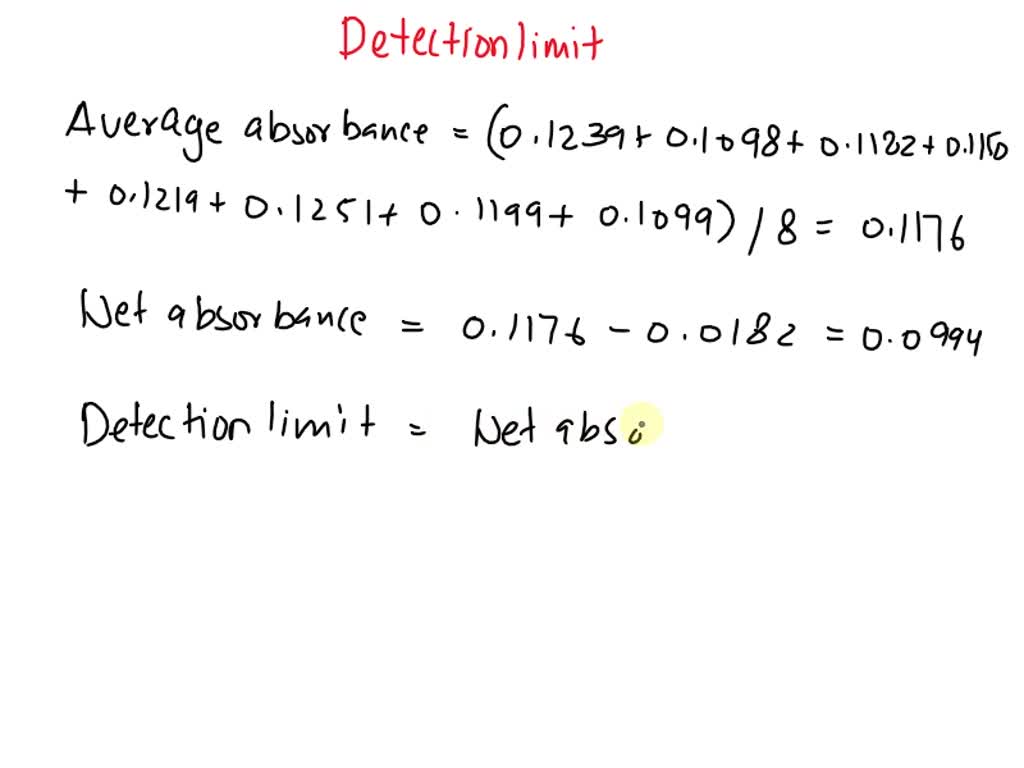 Detection limit
Average absorbance = (0.1239+ 0.1098+ 0.1182+ 0.1150
+ 0.1219+ 0.1251+ 0.1199+ 0.1099) / 8 = 0.1176
Net absorbance = 0.1176 - 0.0182 = 0.0994
Detection limit = Net abso